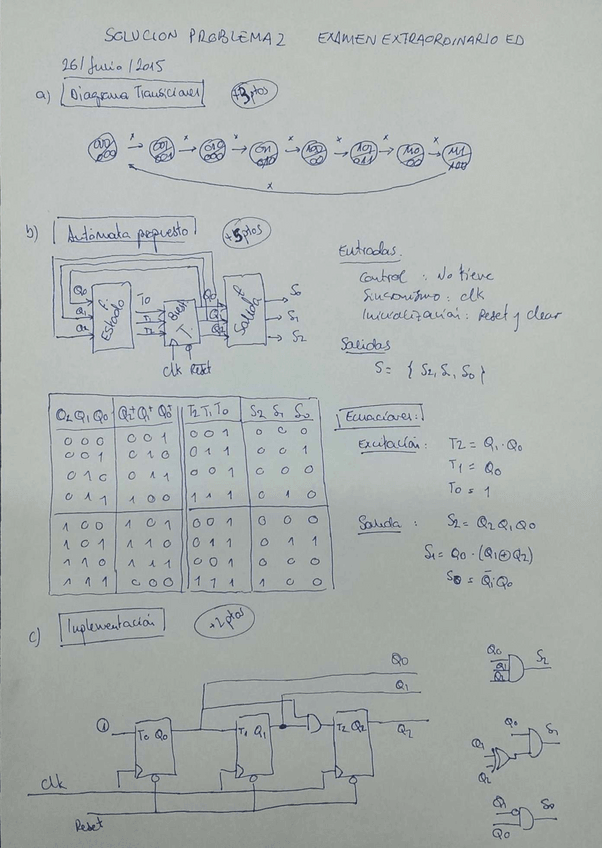 SOLUCION PROBLEMA 2 EXAMEN EXTRAORDINARIO ED
26/Junio/2015
a) Diagrama Transiciones +3 ptos
x x x x x x x
000 001 010 011 100 101 110 111
000 001 000 010 00 011 00 100
x
b) Autómata propuesto +5 ptos
Q0 Q1 Q2
f. Estado
T0 T1 T2
Biest. T.
Q0 Q1 Q2
f. Salida
S0
S1
S2
clk Reset
Entradas.
Control : No tiene
Sincronismo : clk
Inicialización : Reset y clear
Salidas
S = { S2, S1, S0 }
Q2 Q1 Q0 Q2+ Q1+ Q0+ T2 T1 T0 S2 S1 S0
0 0 0 0 0 1 0 0 1 0 0 0
0 0 1 0 1 0 0 1 1 0 0 1
0 1 0 0 1 1 0 0 1 0 0 0
0 1 1 1 0 0 1 1 1 0 1 0
1 0 0 1 0 1 0 0 1 0 0 0
1 0 1 1 1 0 0 1 1 0 1 1
1 1 0 1 1 1 0 0 1 0 0 0
1 1 1 0 0 0 1 1 1 1 0 0
Ecuaciones:
Excitación: T2 = Q1 · Q0
T1 = Q0
T0 = 1
Salida : S2 = Q2 Q1 Q0
S1 = Q0 · (Q1 ⊕ Q2)
S0 = Q̄1 Q0
c) Implementación +2 ptos
Q0
Q1
Q2
① T0 Q0 T1 Q1 T2 Q2
Clk
Reset
Q0 Q1 Q2 S2
Q0 Q1 Q2 S1
Q1 Q0 S0